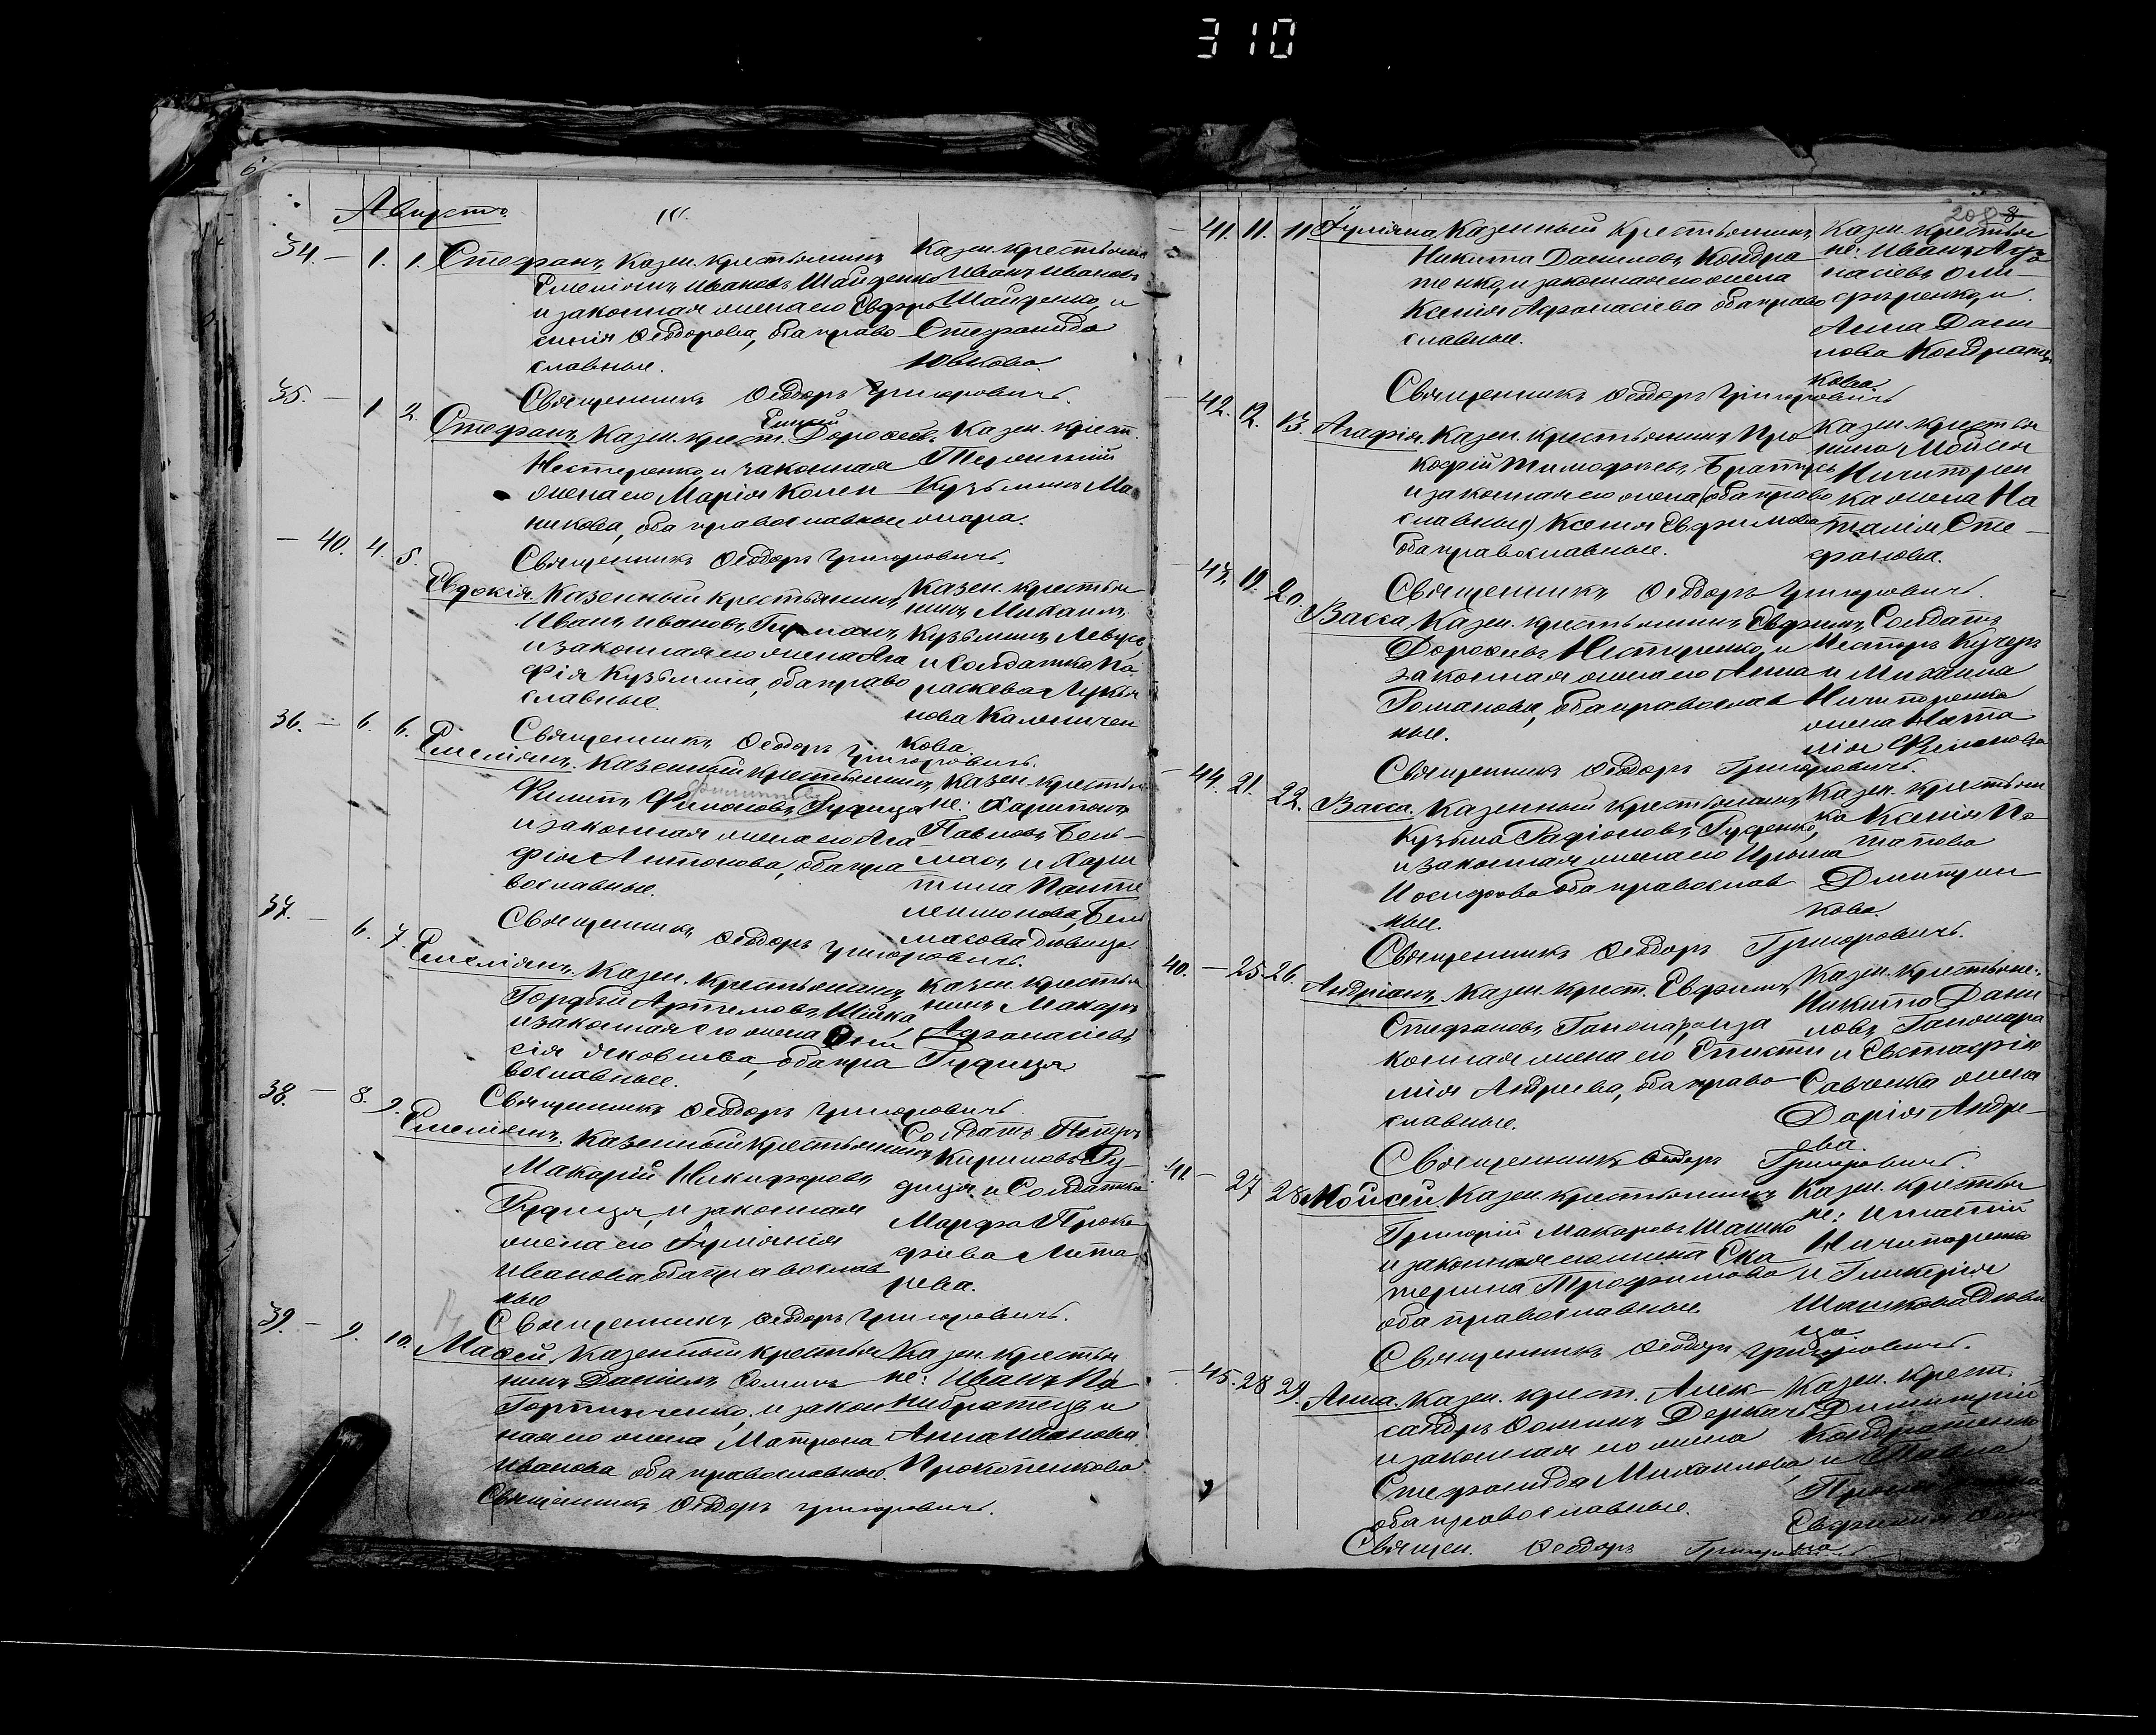 310
Августъ
34. — 1. 1. Стефанъ, Казен. крестьянинъ
Емеліянъ Ивановъ Шайденко
и законная жена его Евфро
синія Ѳеодорова, оба право
славные.
Казен. крестьяне
Иванъ Ивановъ
Шайденко, и
Стефанида
Ювкова.
Священникъ Ѳеодоръ Григоровичъ.
35. — 1 2. Стефанъ, Казен. крест. Дороѳей
Нестеренко и законная
жена его Марія Колен
никова, оба православные
Казен. крест.
Терентий
Кузьминъ Ма
Священникъ Ѳеодоръ Григоровичъ.
— 40. 4. 5. Евдокія. Казенный крестьянинъ
Иванъ Ивановъ
и законная его жена Ага
фія Кузьмина, оба право
славные.
Казен. крестья
нинъ Михаилъ
Кузьминъ
и Солдатка Па
раскева Лукья
нова
кова.
Священникъ Ѳеодоръ Григоровичъ.
36. — 6. 6. Емеліянъ. Казенный крестьянинъ
Филипъ Филоновъ, Рудица
и законная жена его Ага
фія Антонова, оба пра
вославные.
Казен. крестья
не: Харитонъ
Павловъ Бель
масъ и Хари
тина Панте
леимонова, Бель
масова дѣвица
Священникъ, Ѳеодоръ Григоровичъ.
37. — 6. 7. Емеліянъ, Казен. Крестьянинъ
Гордѣй Артемовъ, Шійка
и законная его жена Ани
сія Яковлева, оба пра
вославные.
Казен. крестья
нинъ Макаръ
Афанасіевъ
Рудица
Священникъ Ѳеодоръ Григоровичъ
38. — 8. 9. Емеліянъ. Казенный крестьянинъ
Макарій Никифоровъ
Рудица, и законная
жена его Гулянія
Иванова оба православ
ные
Солдатъ Петръ
Кириловъ Ру
дица и Солдатка
Марфа Проко
фіева Лита
рева.
Священникъ Ѳеодоръ Григоровичъ.
39. — 9. 10. Маѳей, Казенный крестья
нинъ Даніилъ Ѳоминъ
и закон
ная его жена Матрона
Иванова оба православные.
Казен. крестья
не: Иванъ Па
нибратецъ и
Анна Иванова
Прокопенкова
Священникъ Ѳеодоръ Григоровичъ.
208
41. 11. 11 Іуліяна. Казенный крестьянинъ,
Никита Даниловъ, Кондра
тенко, и законная его жена
Ксенія Афанасіева оба право
славные.
Казен. крестья
не: Иванъ Афа
насіевъ Оли
ференко, и
Анна Дани
лова Кондратен
кова
Священникъ Ѳеодоръ Григоровичъ
42. 12. 13. Агафія. Казен. крестьянинъ Про
кофій Тимофеевъ, Братусь
и законная его жена (оба право
славные) Ксенія Евфимова
оба православные.
Казен. крестья
нина Мойсея
Ничиторен
ка жена На
талія Сте
фанова.
Священникъ Ѳеодоръ Григоровичъ.
43. 19. 20. Васса. Казен. крестьянинъ, Евфимъ
Дороѳеевъ Нестеренко, и
законная жена его Анна
Романова, оба православ
ные.
Солдатъ
Несторъ Кучеръ
и Михаила
Ничипоренка
жена Ната
лія Филонова
Священникъ Ѳеодоръ Григоровичъ.
44. 21. 22. Васса. Казенный крестьянинъ,
Кузьма Радіоновъ, Руденко,
и законная жена его Ирина
Иосифова оба православ
ные.
Казен. крестьян
ка Ксенія По
тапова
Дмитрен
кова.
Священникъ Ѳеодоръ Григоровичъ.
40. — 25 26. Андріанъ, Казен. крест. Евфимъ
Стефановъ Гапонара, и за
конная жена его Еписти
мія Андреева, оба право
славные.
Казен. крестьяне:
Никита Дани
ловъ Гапонара
и Евстафія
Савченка жена
Дарія Андре
ева.
Священникъ Ѳеодоръ Григоровичъ.
41 — 27 28 Мойсей. Казен. крестьянинъ
Григорій Макаровъ Машко
и законная его жена Ека
терина Трофимова
оба православные.
Казен. крестья
не: Игнатій
Ничипоренко
и Гликерія
Машкова дѣви
ца.
Священникъ Ѳеодоръ Григоровичъ.
— 45. 28 29. Анна. Казен. крест. Алек
сандръ Ѳоминъ Деркачъ
и законная его жена
Стефанида Михаилова,
оба православные.
Казен. крест.
Димитрій
Кондратенко
и
Священ. Ѳеодоръ Григоровичъ